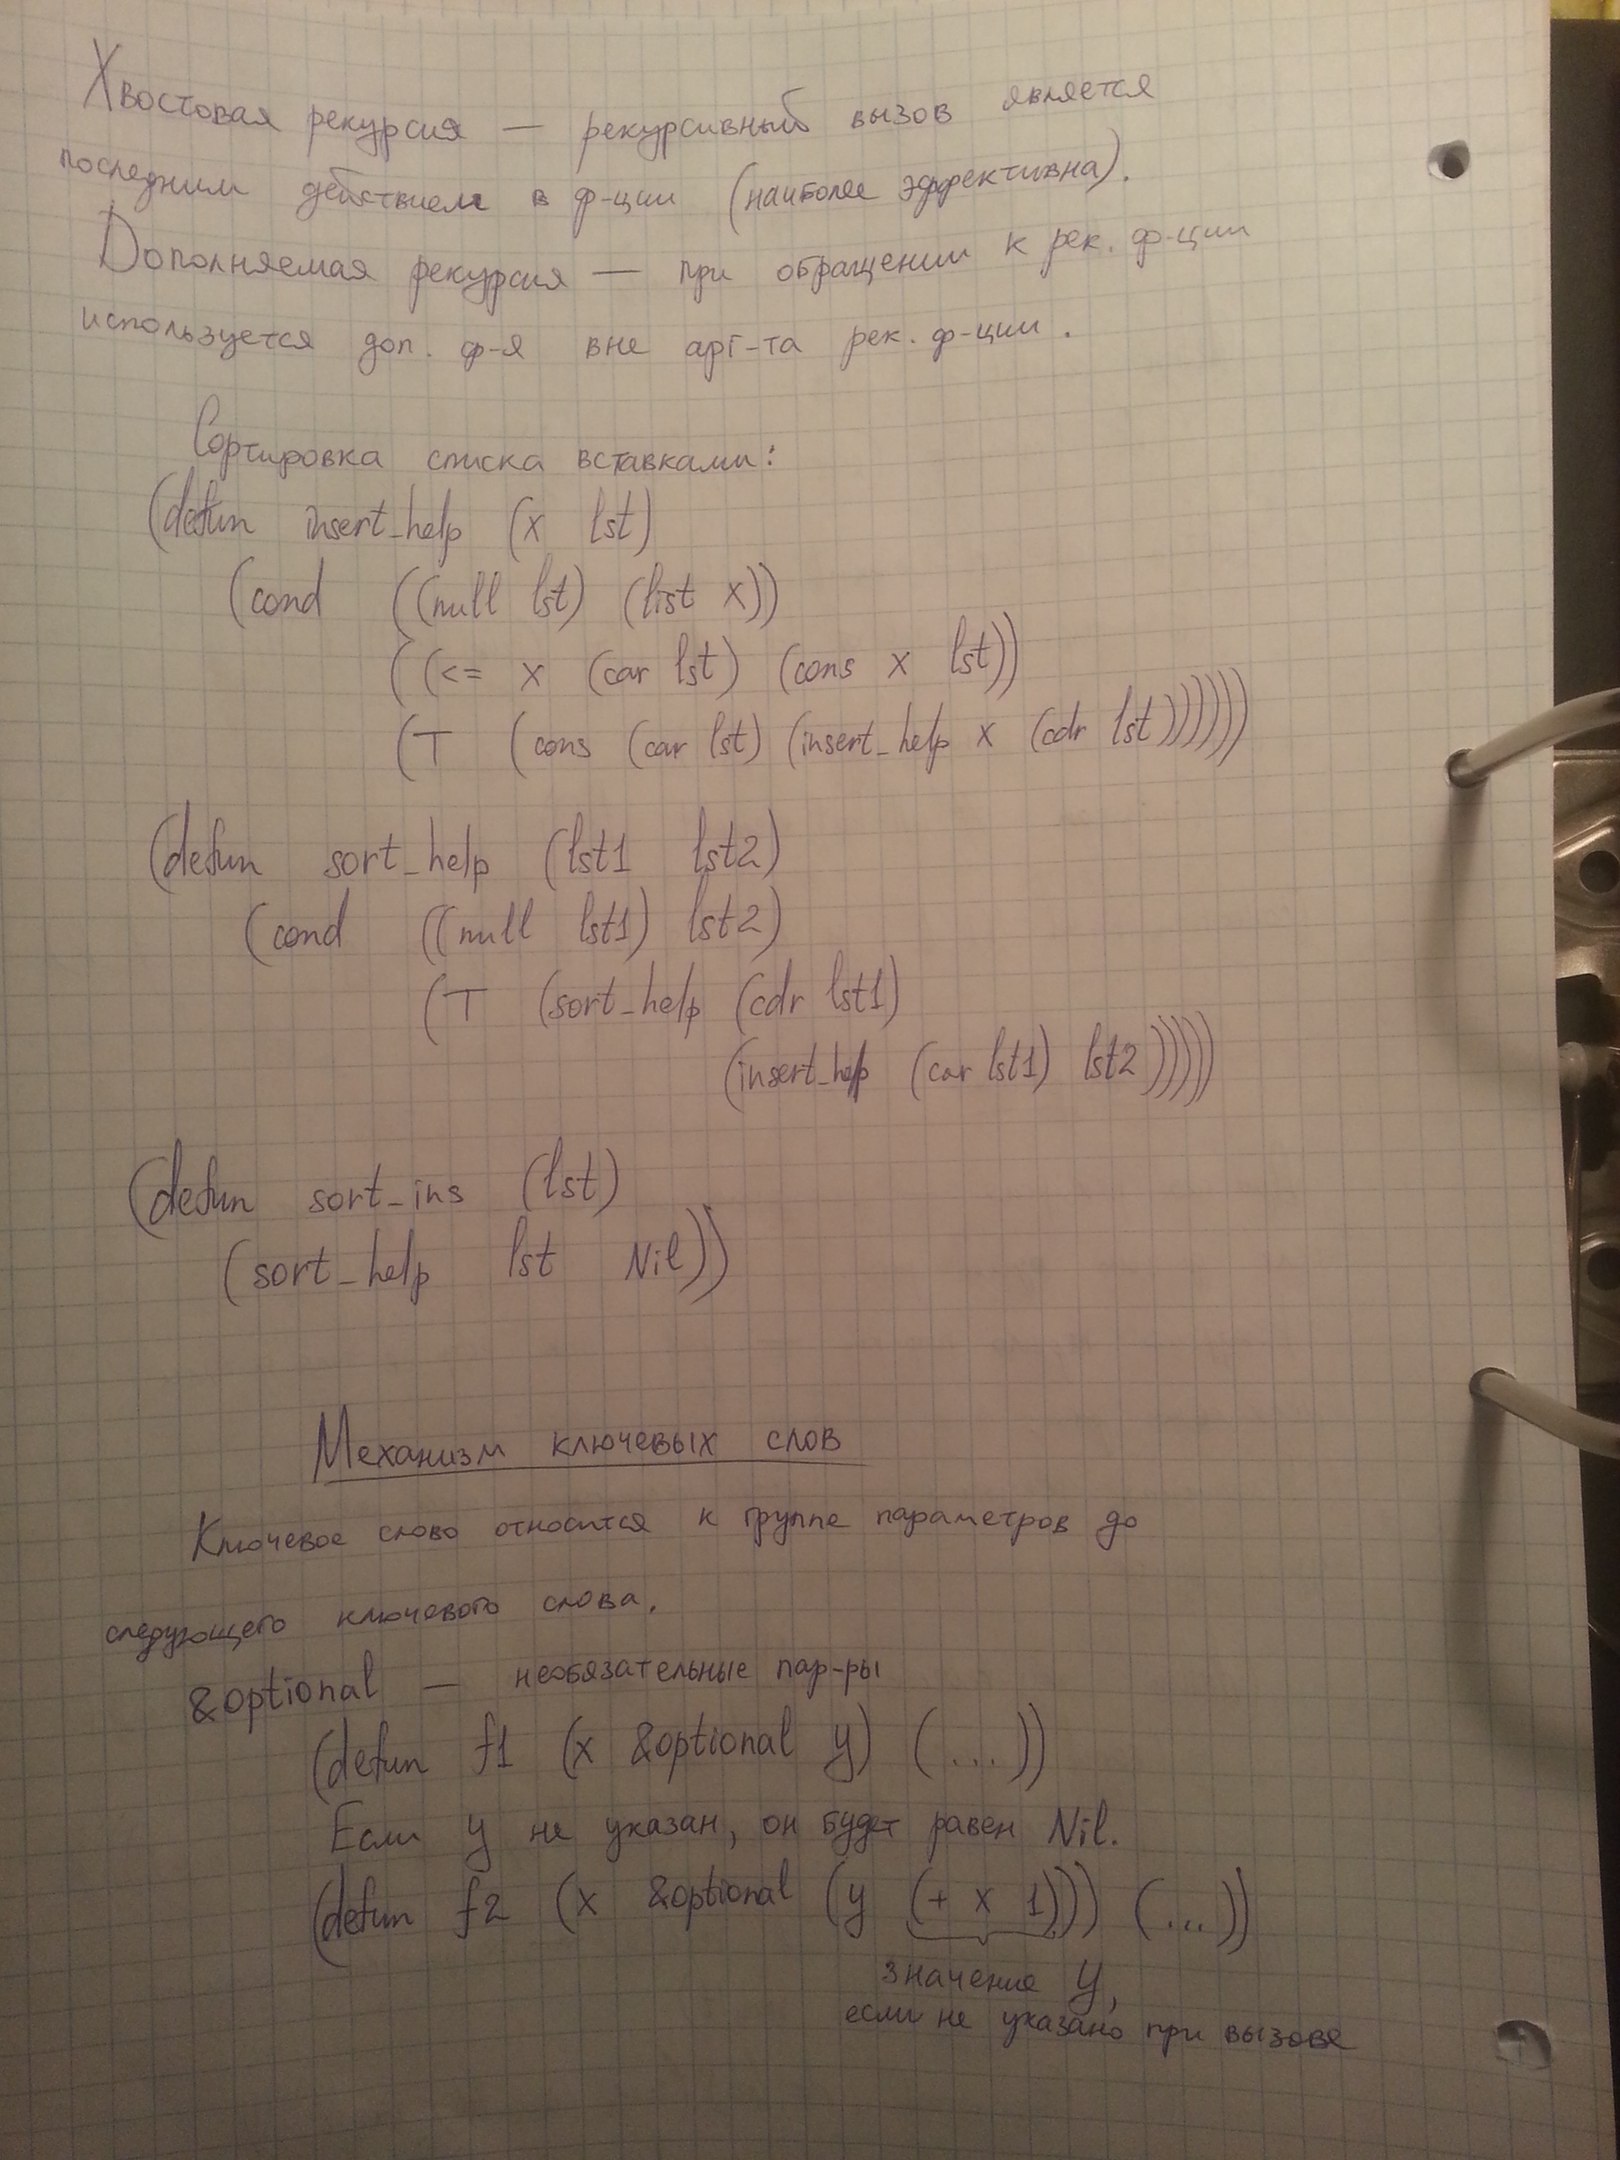 Хвостовая рекурсия — рекурсивный вызов является
последним действием в ф-ции (наиболее эффективна).
Дополняемая рекурсия — при обращении к рек. ф-ции
используется доп. ф-я вне арг-та рек. ф-ции.
Сортировка списка вставками:
(defun insert_help (x lst)
(cond ((null lst) (list x))
((<= x (car lst) (cons x lst))
(T (cons (car lst) (insert_help x (cdr lst))))))
(defun sort_help (lst1 lst2)
(cond ((null lst1) lst2)
(T (sort_help (cdr lst1)
(insert_help (car lst1) lst2)))))
(defun sort_ins (lst)
(sort_help lst Nil))
Механизм ключевых слов
Ключевое слово относится к группе параметров до
следующего ключевого слова.
&optional — необязательные пар-ры
(defun f1 (x &optional y) (...))
Если y не указан, он будет равен Nil.
(defun f2 (x &optional (y (+ x 1))) (...))
значение y,
если не указано при вызове